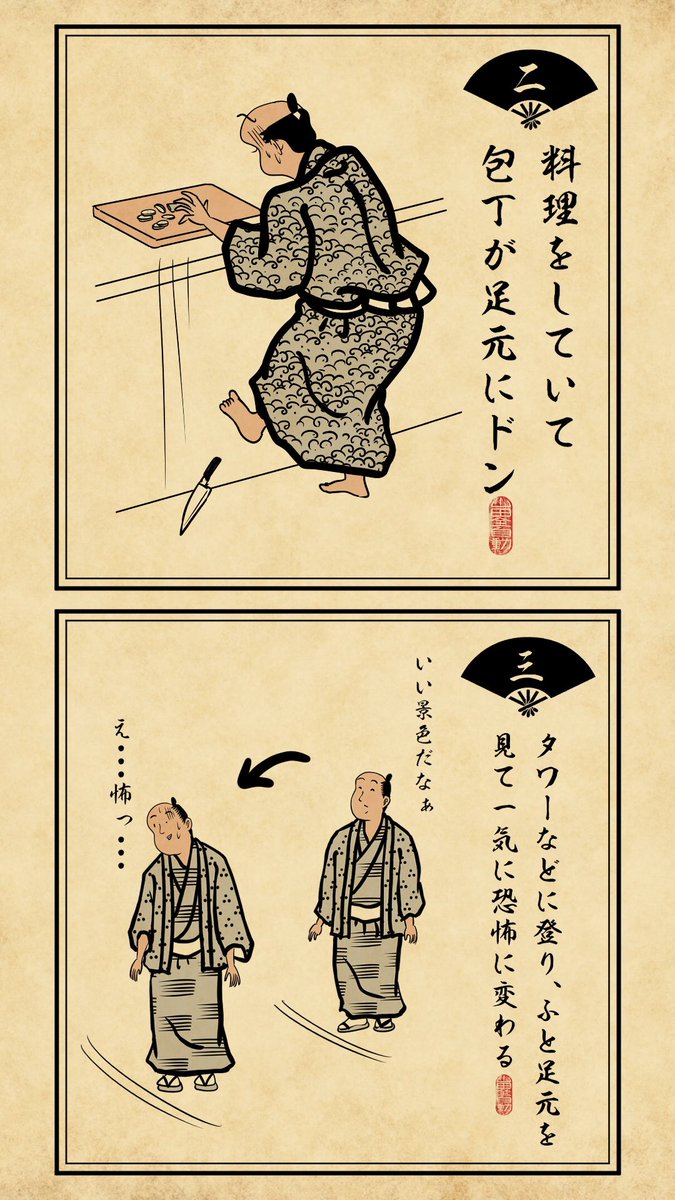 二
料理をしていて
包丁が足元にドン
三
タワーなどに登り、ふと足元を
見て一気に恐怖に変わる
いい景色だなぁ
え・・・怖っ・・・